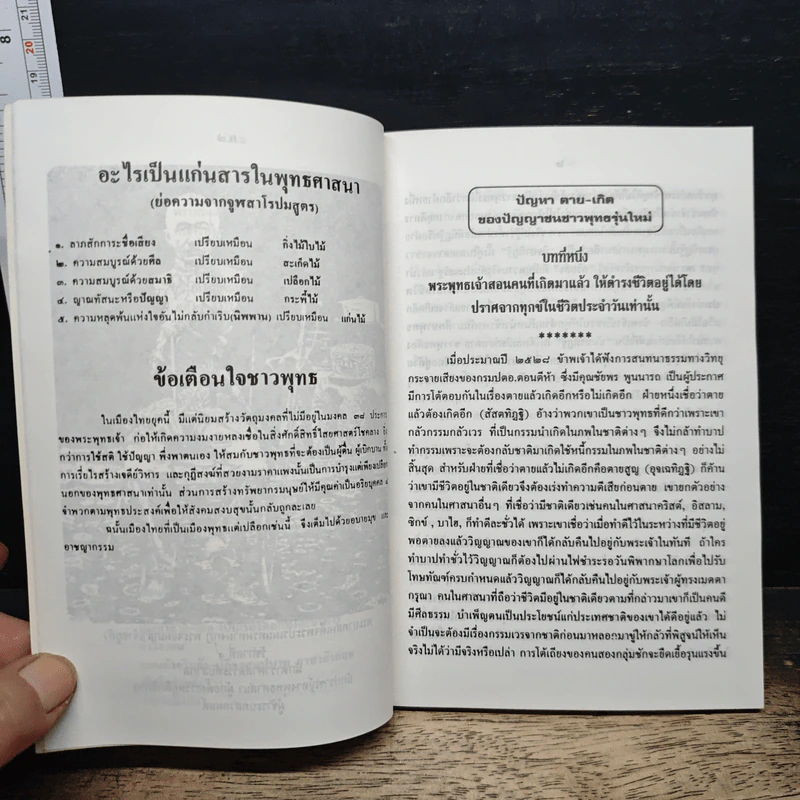 อะไรเป็นแก่นสารในพุทธศาสนา
(ย่อความจากจูฬสาโรปมสูตร)
๑. ลาภสักการะชื่อเสียง เปรียบเหมือน กิ่งไม้ใบไม้
๒. ความสมบูรณ์ด้วยศีล เปรียบเหมือน สะเก็ดไม้
๓. ความสมบูรณ์ด้วยสมาธิ เปรียบเหมือน เปลือกไม้
๔. ญาณทัสนะหรือปัญญา เปรียบเหมือน กระพี้ไม้
๕. ความหลุดพ้นแห่งใจอันไม่กลับกำเริบ(นิพพาน) เปรียบเหมือน แก่นไม้
ข้อเตือนใจชาวพุทธ
ในเมืองไทยยุคนี้ มีแต่นิยมสร้างวัตถุมงคลที่ไม่มีอยู่ในมงคล ๓๘ ประการ
ของพระพุทธเจ้า ก่อให้เกิดความงมงายหลงเชื่อในสิ่งศักดิ์สิทธิ์ไสยศาสตร์โชคลาง
กว่าการใช้สติ ใช้ปัญญา พึ่งพาตนเอง ให้สมกับชาวพุทธที่จะต้องเป็นผู้ตื่น ผู้เบิกบาน
การเรี่ยไรสร้างเจดีย์วิหาร และกุฏิสงฆ์ที่สวยงามราคาแพงนั้นเป็นการบำรุงแต่เพียงเปลือก
นอกของพุทธศาสนาเท่านั้น ส่วนการสร้างทรัพยากรมนุษย์ให้มีคุณค่าเป็นอริยบุคคล ๔
จำพวกตามพุทธประสงค์เพื่อให้สังคมสงบสุขนั้นกลับถูกละเลย
ฉนั้นเมืองไทยที่เป็นเมืองพุทธแต่เปลือกเช่นนี้ จึงเต็มไปด้วยอบายมุข และ
อาชญากรรม
๑
ปัญหา ตาย-เกิด
ของปัญญาชนชาวพุทธรุ่นใหม่
บทที่หนึ่ง
พระพุทธเจ้าสอนคนที่เกิดมาแล้ว ให้ดำรงชีวิตอยู่ได้โดย
ปราศจากทุกข์ในชีวิตประจำวันเท่านั้น
*******
เมื่อประมาณปี ๒๕๒๘ ข้าพเจ้าได้ฟังการสนทนาธรรมทางวิทยุ
กระจายเสียงของกรมปตอ.ตอนตีห้า ซึ่งมีคุณชัยพร พูนนารถ เป็นผู้ประกาศ
มีการโต้ตอบกันในเรื่องตายแล้วเกิดอีกหรือไม่เกิดอีก ฝ่ายหนึ่งเชื่อว่าตาย
แล้วต้องเกิดอีก (สัสตทิฏฐิ) อ้างว่าพวกเขาเป็นชาวพุทธที่ดีกว่าเพราะเขา
กลัวกรรมกลัวเวร ที่เป็นกรรมนำเกิดในภพในชาติต่างๆ จึงไม่กล้าทำบาป
ทำกรรมเพราะจะต้องกลับชาติมาเกิดใช้หนี้กรรมในภพในชาติต่างๆ อย่างไม่
สิ้นสุด สำหรับฝ่ายที่เชื่อว่าตายแล้วไม่เกิดอีกคือตายสูญ (อุจเฉทิฏฐิ) ก็ค้าน
ว่าเขามีชีวิตอยู่ในชาติเดียวจึงต้องเร่งทำความดีเสียก่อนตาย เขายกตัวอย่าง
จากคนในศาสนาอื่นๆ ที่เชื่อว่ามีชาติเดียวเช่นคนในศาสนาคริสต์, อิสลาม,
ซิกข์, บาไฮ, ก็ทำดีละชั่วได้ เพราะเขาเชื่อว่าเมื่อทำดีไว้ในระหว่างที่มีชีวิตอยู่
พอตายลงแล้ววิญญาณของเขาก็ได้กลับคืนไปอยู่กับพระเจ้าในทันที ถ้าใคร
ทำบาปทำชั่วไว้วิญญาณก็ต้องไปผ่านไฟชำระรอวันพิพากษาโลกเพื่อไปรับ
โทษทัณฑ์ครบกำหนดแล้ววิญญาณก็ได้กลับคืนไปอยู่กับพระเจ้าผู้ทรงเมตตา
กรุณา คนในศาสนาที่ถือว่าชีวิตมีอยู่ในชาติเดียวตามที่กล่าวมาเขาก็เป็นคนดี
มีศีลธรรม บำเพ็ญตนเป็นประโยชน์แก่ประเทศชาติของเขาได้ดีอยู่แล้ว ไม่
จำเป็นจะต้องมีเรื่องกรรมเวรจากชาติก่อนมาหลอกมาขู่ให้กลัวที่พิสูจน์ให้เห็น
จริงไม่ได้ว่ามีจริงหรือเปล่า การโต้เถียงของคนสองกลุ่มชักจะยืดเยื้อรุนแรงขึ้น
8
21
20
19